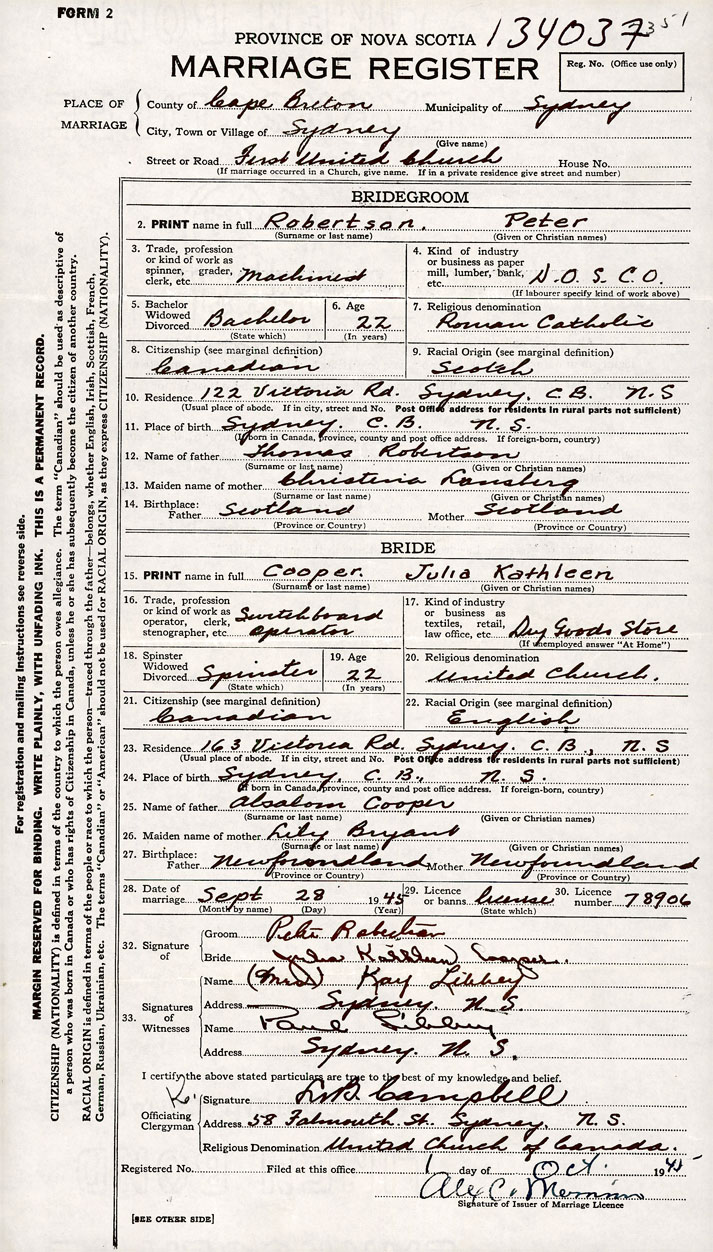 FORM 2
PROVINCE OF NOVA SCOTIA 134037 351
MARRIAGE REGISTER
Reg. No. (Office use only)
PLACE OF MARRIAGE
County of Cape Breton Municipality of Sydney
City, Town or Village of Sydney
(Give name)
Street or Road First United Church House No.
(If marriage occurred in a Church, give name. If in a private residence give street and number)
BRIDEGROOM
2. PRINT name in full Robertson, Peter
(Surname or last name) (Given or Christian names)
3. Trade, profession or kind of work as spinner, grader, clerk, etc. Machinest
4. Kind of industry or business as paper mill, lumber, bank, etc. D.O.S.CO.
(If labourer specify kind of work above)
5. Bachelor Widowed Divorced Bachelor
(State which)
6. Age 22
(In years)
7. Religious denomination
Roman Catholic
8. Citizenship (see marginal definition)
Canadian
9. Racial Origin (see marginal definition)
Scotch
10. Residence 122 Victoria Rd. Sydney, C.B. N.S
(Usual place of abode. If in city, street and No. Post Office address for residents in rural parts not sufficient)
11. Place of birth Sydney. C.B. N.S.
(If born in Canada, province, county and post office address. If foreign-born, country)
12. Name of father Thomas Robertson
(Surname or last name) (Given or Christian names)
13. Maiden name of mother Christena Lansberg
(Surname or last name) (Given or Christian names)
14. Birthplace: Father Scotland Mother Scotland
(Province or Country) (Province or Country)
BRIDE
15. PRINT name in full Cooper, Julia Kathleen
(Surname or last name) (Given or Christian names)
16. Trade, profession or kind of work as operator, clerk, stenographer, etc. Switchboard operator
17. Kind of industry or business as textiles, retail, law office, etc. Dry Goods Store
(If unemployed answer "At Home")
18. Spinster Widowed Divorced Spinster
(State which)
19. Age 22
(In years)
20. Religious denomination
United Church.
21. Citizenship (see marginal definition)
Canadian
22. Racial Origin (see marginal definition)
English
23. Residence 163 Victoria Rd, Sydney. C.B., N.S
(Usual place of abode. If in city, street and No. Post Office address for residents in rural parts not sufficient)
24. Place of birth Sydney, C.B., N.S.
(If born in Canada, province, county and post office address. If foreign-born, country)
25. Name of father Absalom Cooper
(Surname or last name) (Given or Christian names)
26. Maiden name of mother Lily Bryant
(Surname or last name) (Given or Christian names)
27. Birthplace: Father Newfoundland Mother Newfoundland
(Province or Country) (Province or Country)
28. Date of marriage Sept 28 1945
(Month by name) (Day) (Year)
29. Licence or banns license
(State which)
30. Licence number 78906
32. Signature of
Groom Peter Robertson
Bride Julia Kathleen Cooper.
33. Signatures of Witnesses
Name (Mrs) Kay Libbey
Address Sydney. N.S.
Name Paul Libbey
Address Sydney. N.S.
I certify the above stated particulars are true to the best of my knowledge and belief.
Officiating Clergyman
Signature Campbell
Address 58 Falmouth St. Sydney, N.S.
Religious Denomination United Church of Canada.
Registered No. Filed at this office 1 day of Oct. 1945
Alex C.
Signature of Issuer of Marriage Licence
[SEE OTHER SIDE]
For registration and mailing instructions see reverse side.
MARGIN RESERVED FOR BINDING. WRITE PLAINLY, WITH UNFADING INK. THIS IS A PERMANENT RECORD.
CITIZENSHIP (NATIONALITY) is defined in terms of the country to which the person owes allegiance. The term "Canadian" should be used as descriptive of
a person who was born in Canada or who has rights of Citizenship in Canada, unless he or she has subsequently become the citizen of another country.
RACIAL ORIGIN is defined in terms of the people or race to which the person—traced through the father—belongs, whether English, Irish, Scottish, French,
German, Russian, Ukrainian, etc. The terms "Canadian" or "American" should not be used for RACIAL ORIGIN, as they express CITIZENSHIP (NATIONALITY).